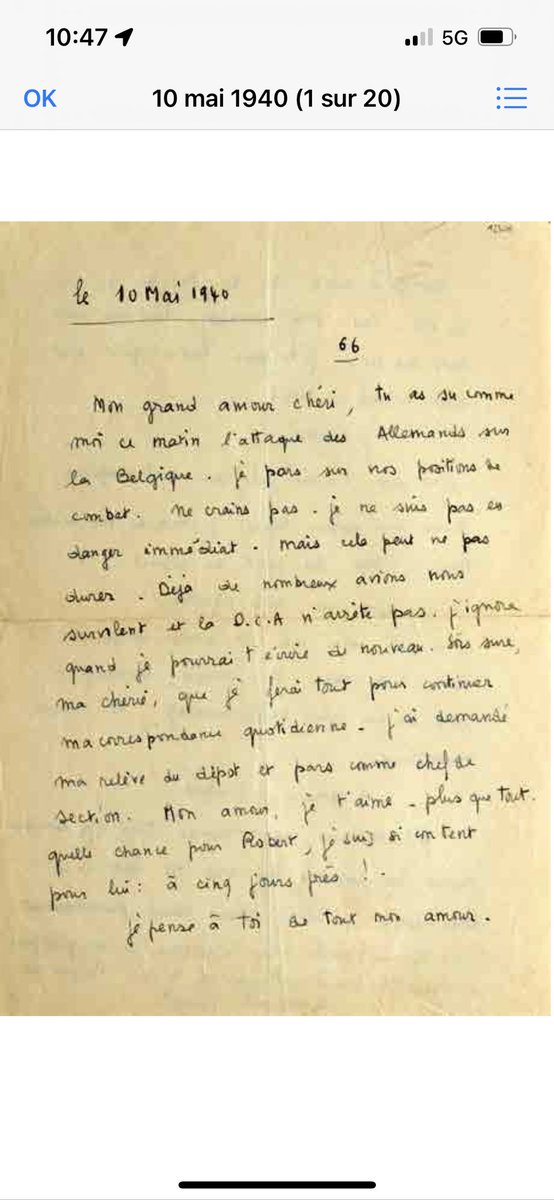 10:47
5G
OK
10 mai 1940 (1 sur 20)
le 10 Mai 1940
66
Mon grand amour chéri, tu as su comme
moi ce matin l'attaque des Allemands sur
la Belgique. je pars sur nos positions de
combat. ne crains pas. je ne suis pas en
danger immédiat. mais cela peut ne pas
durer. Déjà de nombreux avions nous
survolent et la D.C.A n'arrête pas. j'ignore
quand je pourrai t'écrire de nouveau. Sois sure,
ma chérie, que je ferai tout pour continuer
ma correspondance quotidienne. j'ai demandé
ma relève du dépot et pars comme chef de
section. Mon amour, je t'aime. plus que tout.
quelle chance pour Robert, je suis si content
pour lui : à cinq jours près !.
je pense à toi de tout mon amour.